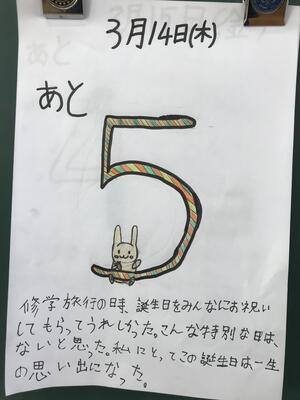 3月14日(木)
あと
5
修学旅行の時、誕生日をみんなにお祝い
してもらってうれしかった。こんな特別な日は、
ないと思った。私にとってこの誕生日は一生
の思い出になった。